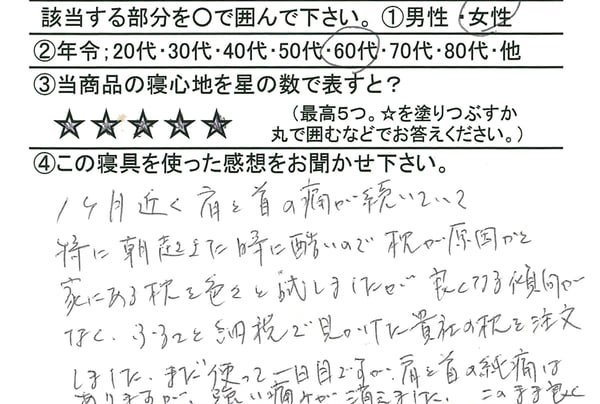 該当する部分を〇で囲んで下さい。①男性・女性
②年令;20代・30代・40代・50代・60代・70代・80代・他
③当商品の寝心地を星の数で表すと?
☆☆☆☆☆ (最高5つ。☆を塗りつぶすか
丸で囲むなどでお答えください。)
④この寝具を使った感想をお聞かせ下さい。
1ヶ月近く肩と首の痛が続いていて
特に朝起きた時に酷いので枕が原因かと
家にある枕を色々と試しましたが良くなる傾向が
なく、ふるさと納税で見かけた貴社の枕を注文
しました、まだ使って一日目ですが、肩と首の鈍痛は
ありますが、強い痛みが消えました。このまま良く